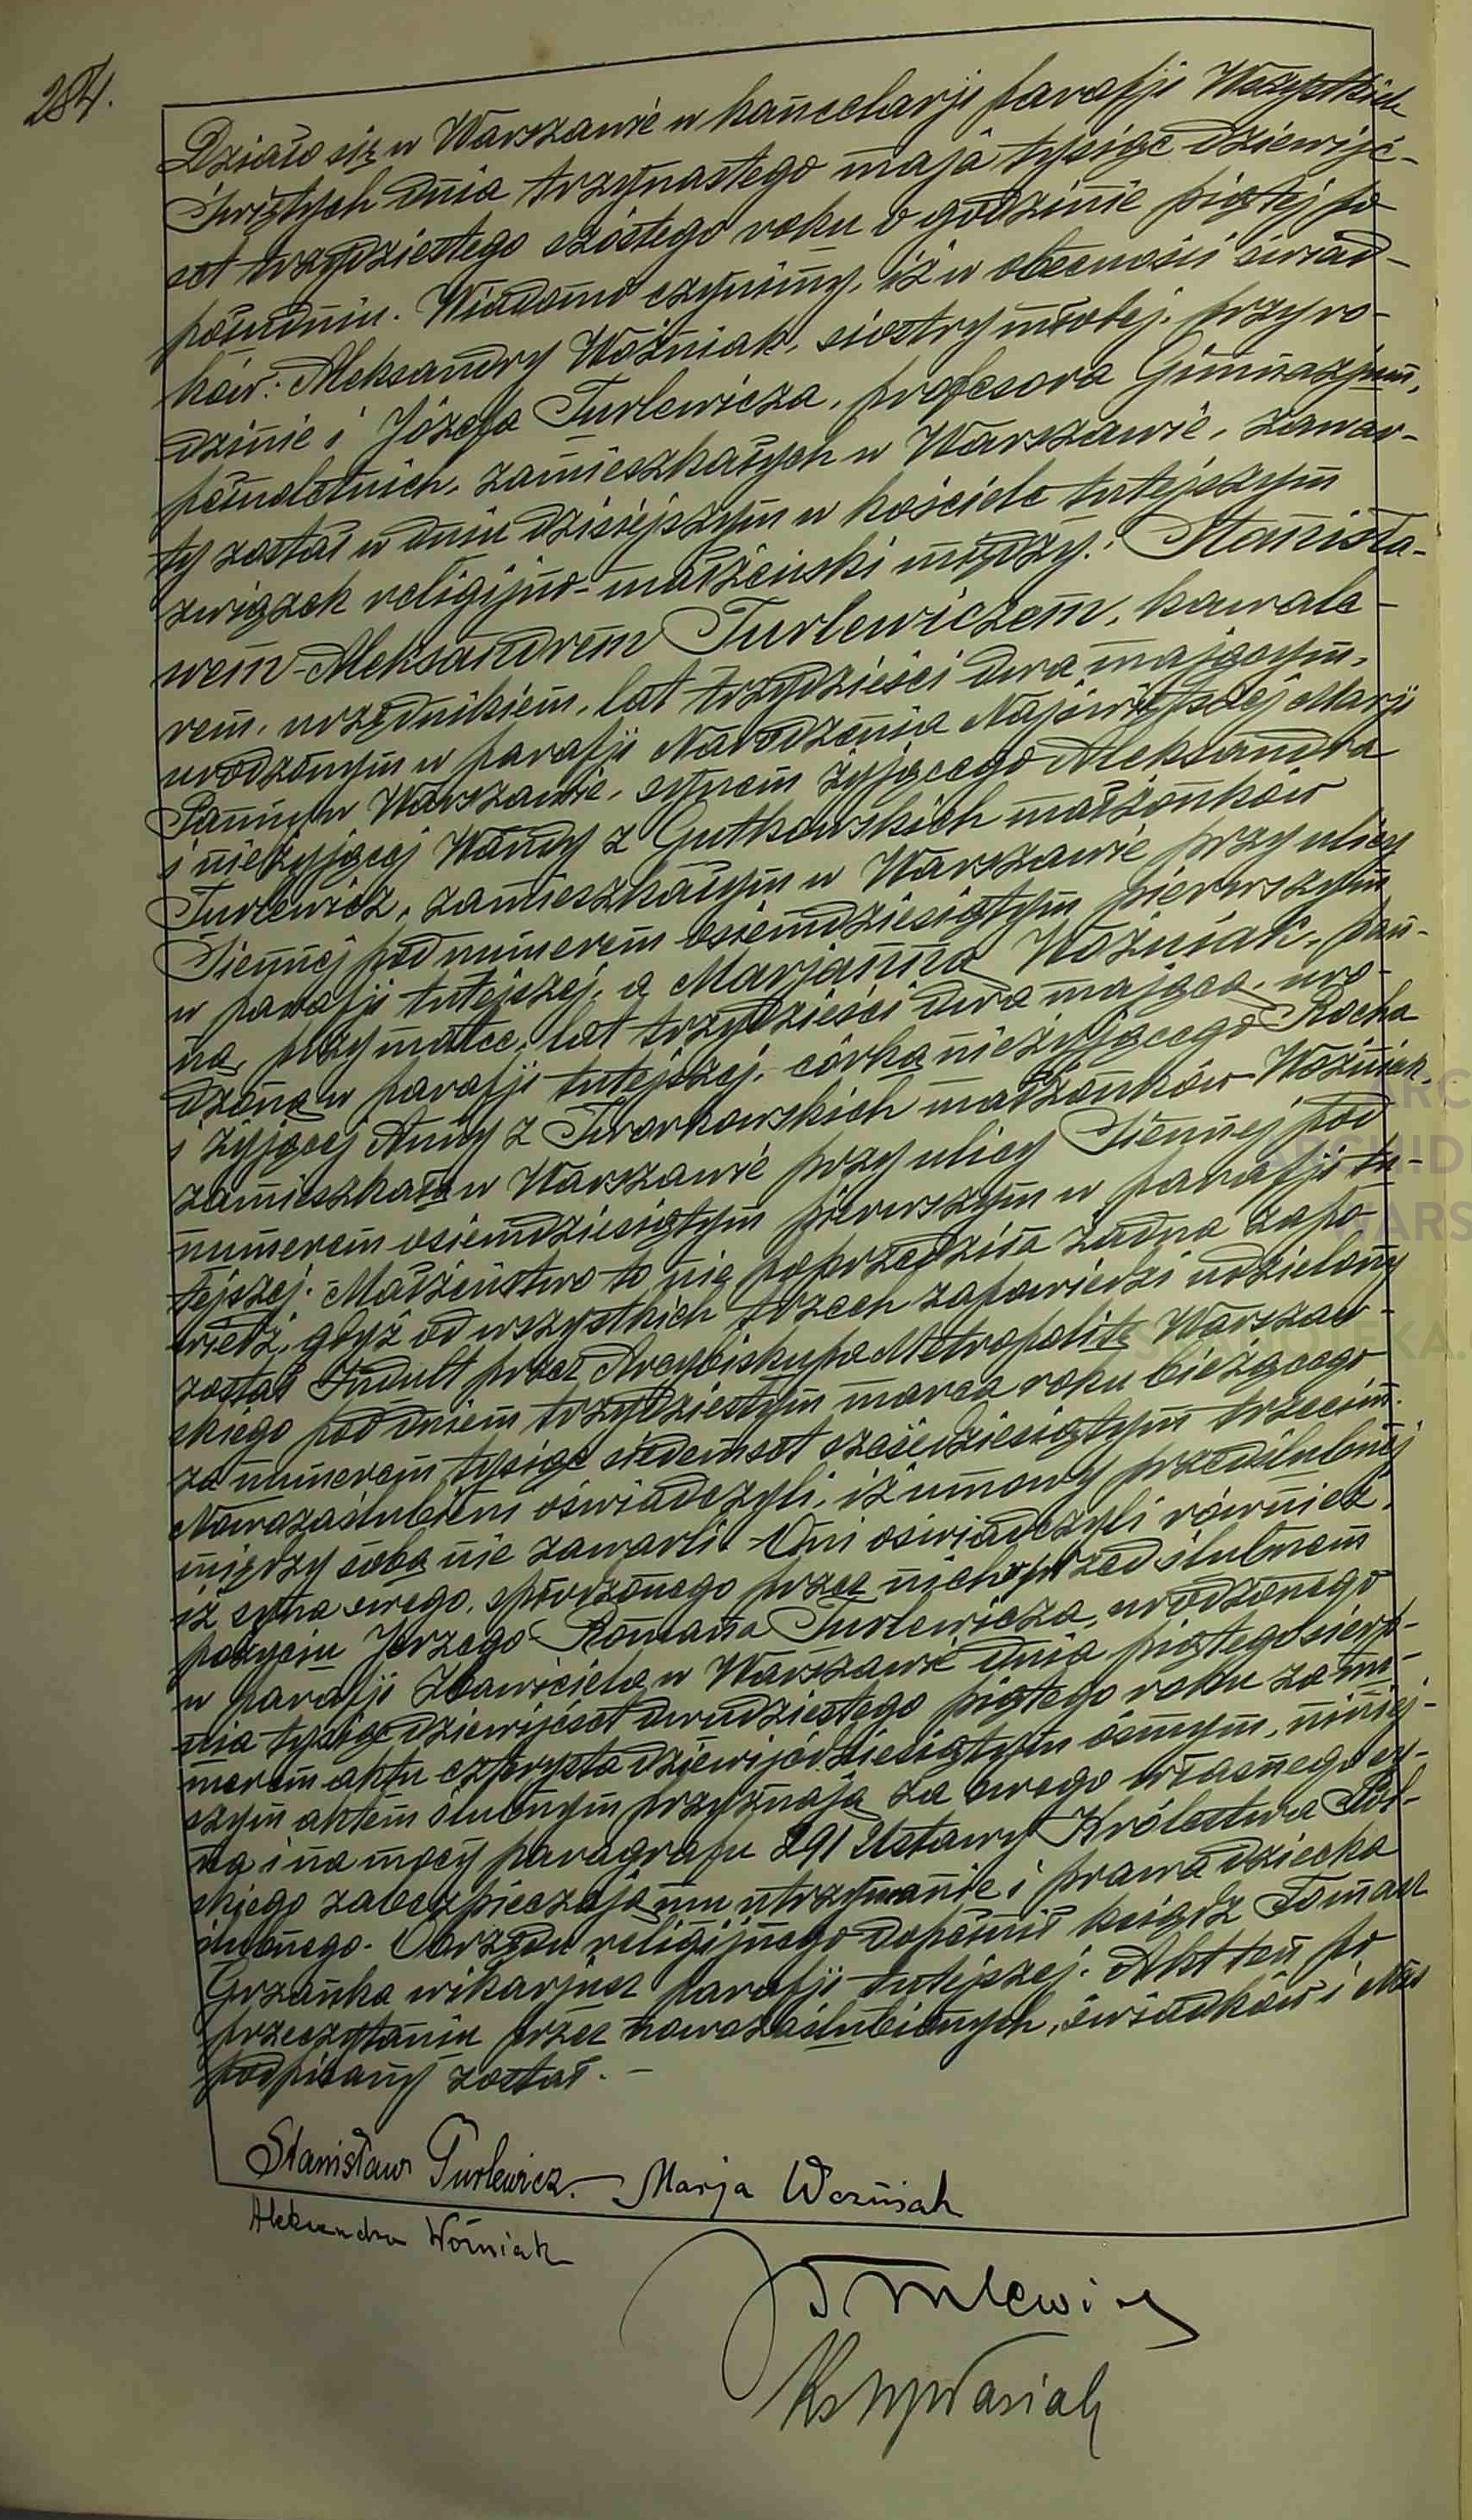 284.
Działo się w Warszawie w kancelarji parafji Wszystkich
Świętych dnia trzynastego maja tysiąc dziewięć-
set trzydziestego szóstego roku o godzinie piątej po
południu. Wiadomo czynimy, iż w obecności świad-
ków: Aleksandry Woźniak, siostry młodej, przy ro-
dzinie i Józefa Turlewicza, profesora Gimnazjum,
pełnoletnich, zamieszkałych w Warszawie, zawar-
ty został w dniu dzisiejszym w kościele tutejszym
związek religijno-małżeński między: Stanisła-
wem-Aleksandrem Turlewiczem, kawale-
rem, urzędnikiem, lat trzydzieści dwa mającym,
urodzonym w parafji Narodzenia Najświętszej Marji
Panny w Warszawie, synem żyjącego Aleksandra
i nieżyjącej Wandy z Gutkowskich małżonków
Turlewicz, zamieszkałym w Warszawie przy ulicy
Siennej pod numerem osiemdziesiątym pierwszym
w parafji tutejszej, a Marjanną Woźniak, pan-
ną, przy matce, lat trzydzieści dwa mającą, uro-
dzoną w parafji tutejszej, córką nieżyjącego Rocha
i żyjącej Anny z Tworkowskich małżonków Woźniak,
zamieszkałą w Warszawie przy ulicy Siennej pod
numerem osiemdziesiątym pierwszym w parafji tu-
tejszej. Małżeństwo to nie poprzedziła żadna zapo
wiedź, gdyż od wszystkich trzech zapowiedzi udzielony
został Indult przez Arcybiskupa Metropolitę Warszaw-
skiego pod dniem trzydziestym marca roku bieżącego
za numerem tysiąc siedemset sześćdziesiątym trzecim.
Nowozaślubieni oświadczyli, iż umowy przedślubnej
między sobą nie zawarli. Oni oświadczyli również,
iż syna swego, spłodzonego przez nich przed ślubnem
pożyciu Jerzego-Romana Turlewicza, urodzonego
w parafji Zbawiciela w Warszawie dnia piątego sierp-
nia tysiąc dziewięćset dwudziestego piątego roku za nu-
merem aktu czterysta dziewięćdziesiątym ósmym, niniej-
szym aktem ślubnym przyznają za swego własnego sy-
na i na mocy paragrafu 291 Ustawy Królestwa Pol-
skiego zabezpieczają mu utrzymanie i prawa dziecka
ślubnego. Obrzędu religijnego dopełnił ksiądz Tomasz
Grzanka wikarjusz parafji tutejszej. Akt ten po
przeczytaniu przez nowozaślubionych, świadków i Nas
podpisany został. -
Stanisław Turlewicz. Marja Woźniak
Aleksandra Woźniak
J Turlewicz
ARC
ARCHID
WARS